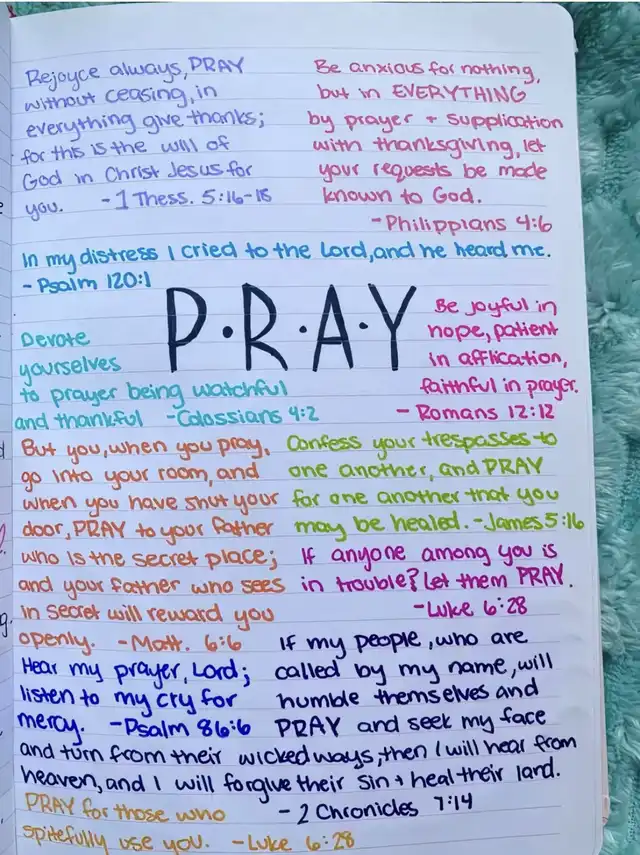 Rejoyce always, PRAY
without ceasing, in
everything give thanks;
for this is the will of
God in Christ Jesus for
you. -1 Thess. 5:16-18
Be anxious for nothing,
but in EVERYTHING
by prayer + supplication
with thanksgiving, let
your requests be made
known to God.
-Philippians 4:6
In my distress I cried to the Lord, and he heard me.
- Psalm 120:1
P.R.A.Y
Devote
yourselves
to prayer being watchful
and thankful -Colossians 4:2
Be joyful in
hope, patient
in afflication,
faithful in prayer.
- Romans 12:12
But you, when you pray,
go into your room, and
when you have shut your
door, PRAY to your father
who is the secret place;
and your father who sees
in secret will reward you
openly. -Matt. 6:6
Confess your trespasses to
one another, and PRAY
for one another that you
may be healed. -James 5:16
If anyone among you is
in trouble? Let them PRAY.
-Luke 6:28
Hear my prayer, Lord;
listen to my cry for
mercy. -Psalm 86:6
If my people, who are
called by my name, will
humble themselves and
PRAY and seek my face
and turn from their wicked ways, then I will hear from
heaven, and I will forgive their sin + heal their land.
- 2 Chronicles 7:14
PRAY for those who
spitefully use you. -Luke 6:28